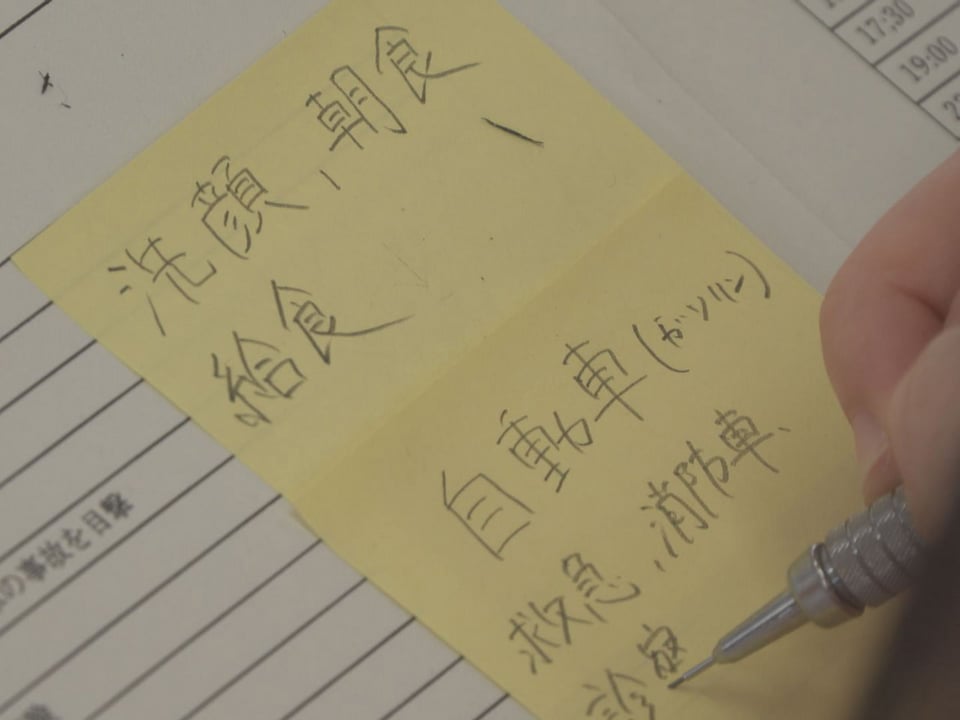 17:30
19:00
洗顔、朝食
給食
自動車(ガソリン)
救急、消防車、
診察
の事故を目撃